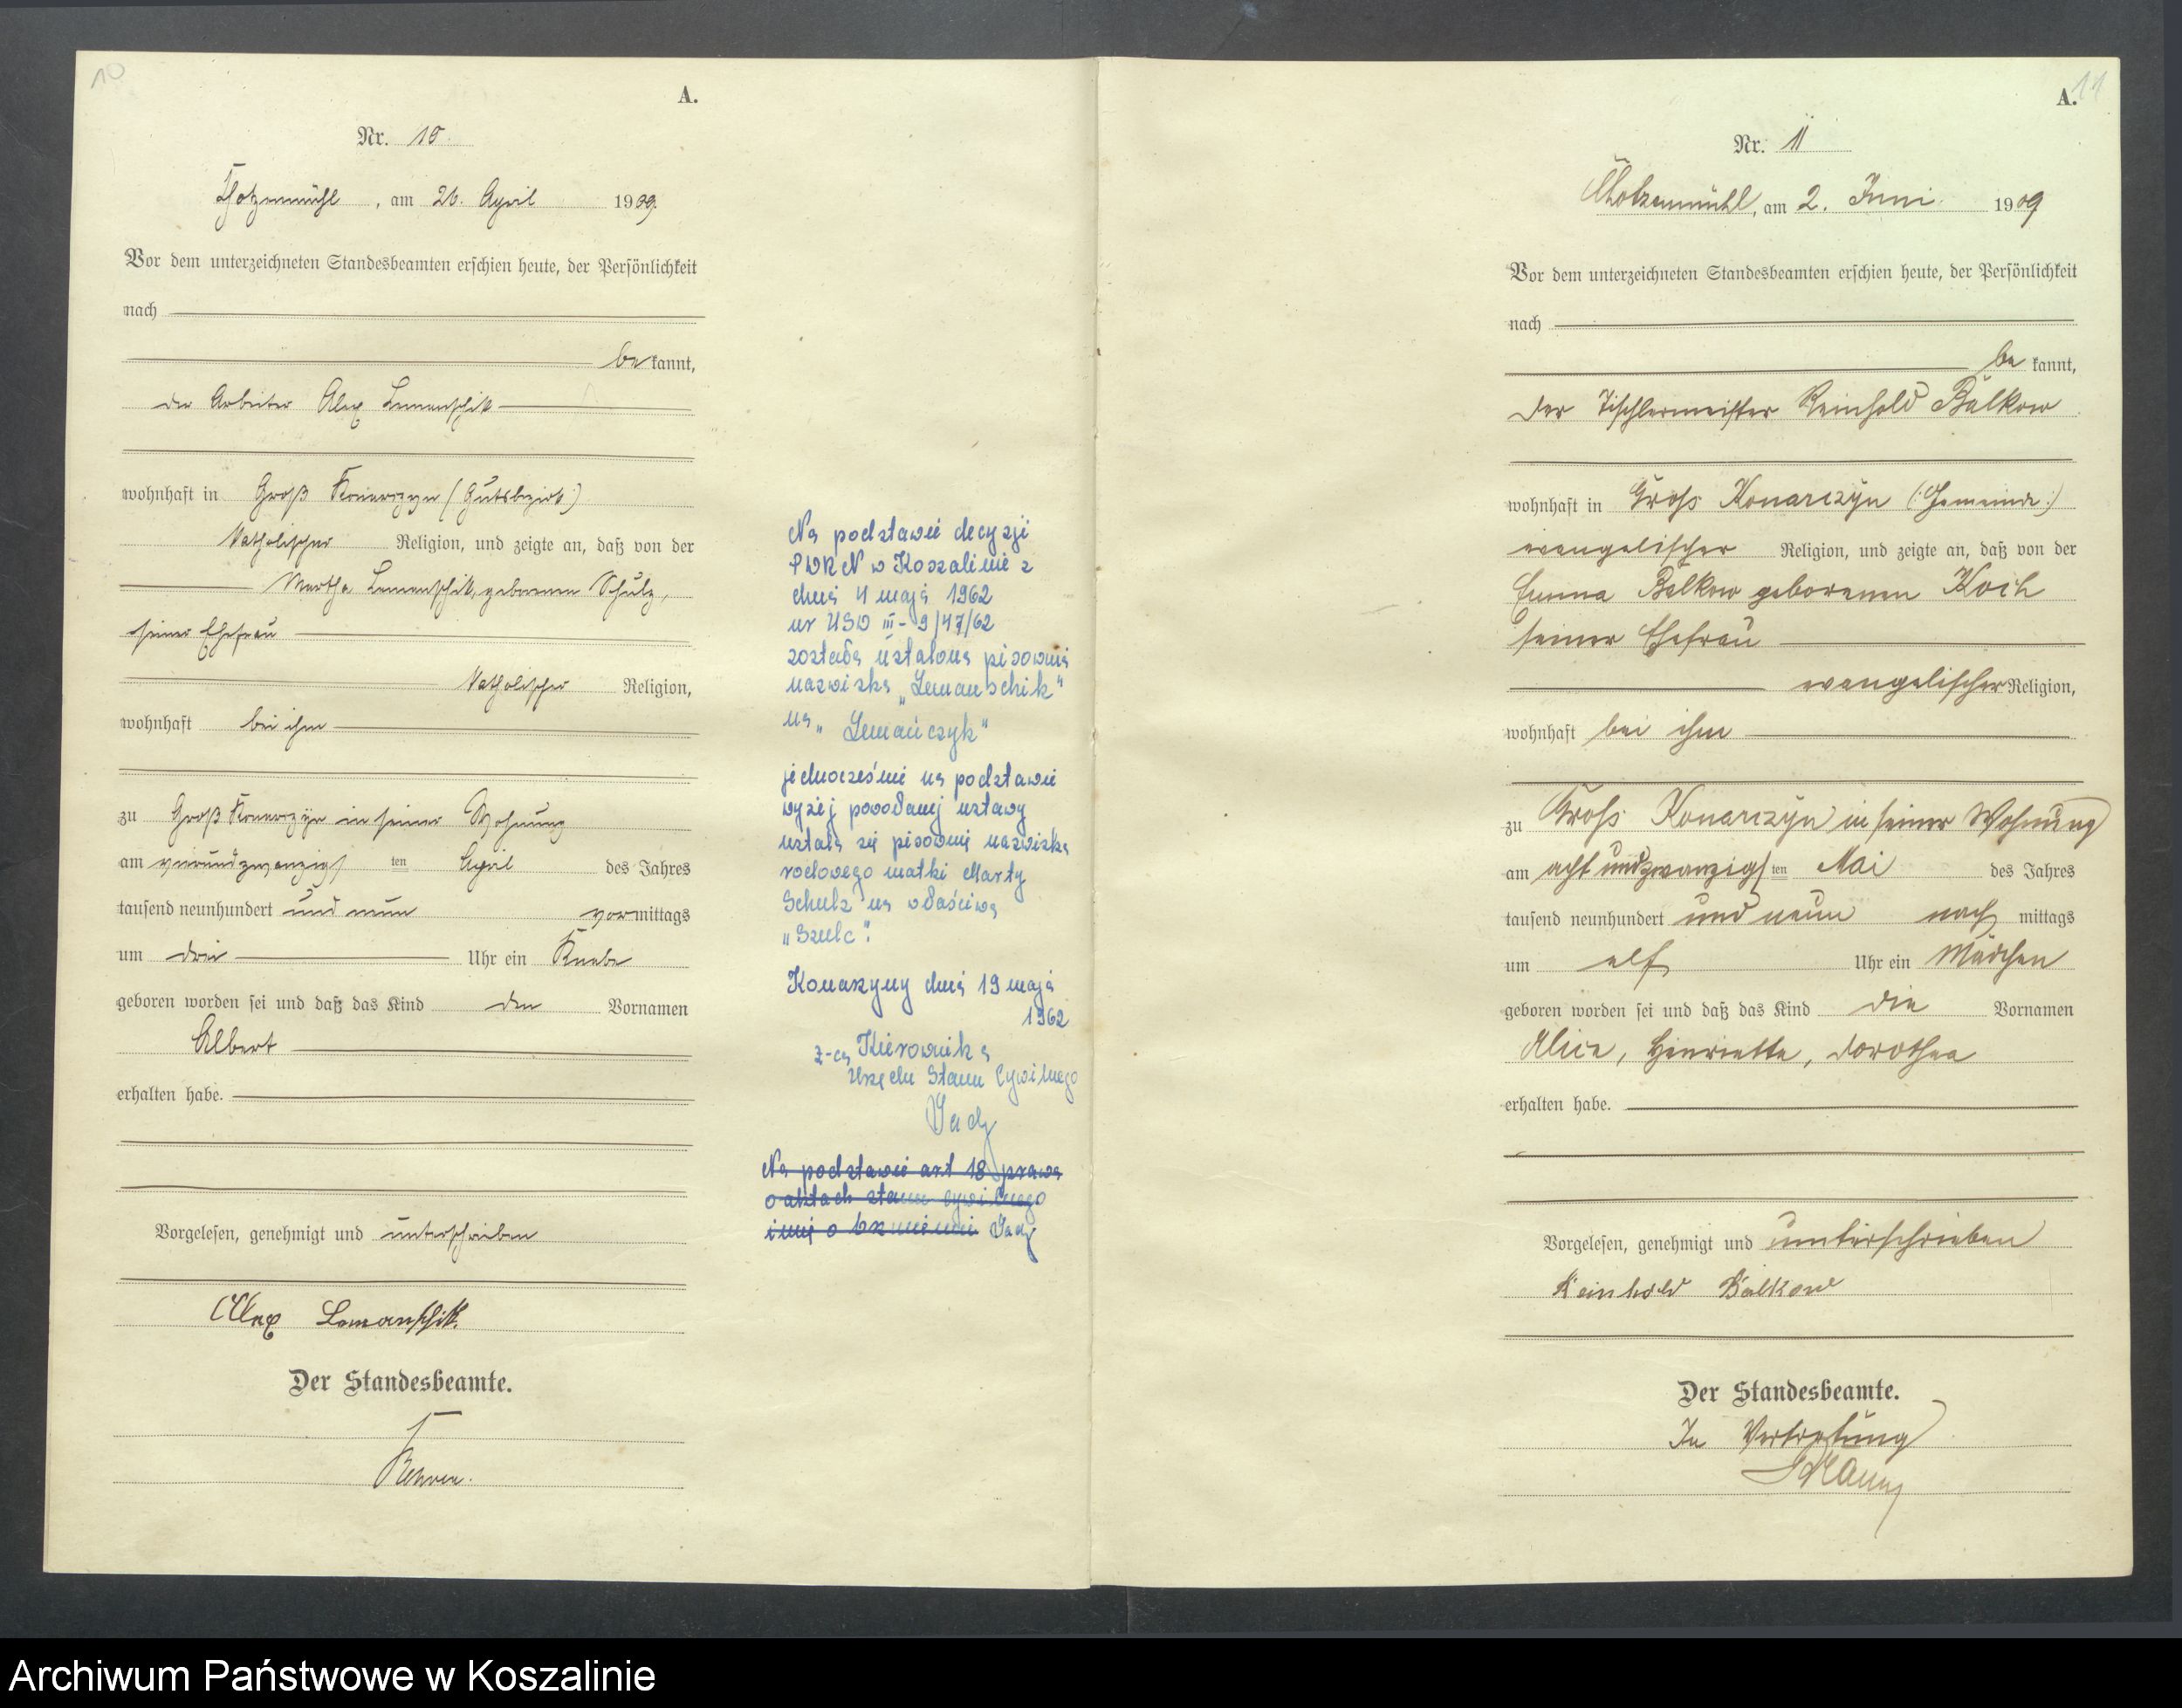 10
A.
Nr. 10.
Chotzenmühl, am 26. April 1909.
Vor dem unterzeichneten Standesbeamten erschien heute, der Persönlichkeit
nach
be kannt,
der Arbeiter Alex Lemanschik
wohnhaft in Groß Konarczyn (Gutsbezirk:)
katholischer Religion, und zeigte an, daß von der
Martha Lemanschik, geborenen Schulz,
seiner Ehefrau
katholischer Religion,
wohnhaft bei ihm
zu Groß Konarczyn in seiner Wohnung
am vierundzwanzigsten April des Jahres
tausend neunhundert und neun vormittags
um drei Uhr ein Knabe
geboren worden sei und daß das Kind den Vornamen
Albert
erhalten habe.
Vorgelesen, genehmigt und unterschrieben
Alex Lemanschik.
Der Standesbeamte.
Na podstawie decyzji
PWRN w Koszalinie z
dnia 4 maja 1962
nr USW III-9/47/62
została ustalona pisownia
nazwiska „Lemanschik"
na „Lemańczyk"
jednocześnie na podstawie
wyżej powołanej ustawy
ustala się pisownię nazwiska
rodowego matki Marty
Schulz na właściwą
„Szulc".
Konarzyny dnia 19 maja
1962
z-ca Kierownika
Urzędu Stanu Cywilnego
Na podstawie art 18 prawa
o aktach stanu cywilnego
imię o brzmieniu
11
A.
Nr. 11
Chotzenmühl, am 2. Juni 1909
Vor dem unterzeichneten Standesbeamten erschien heute, der Persönlichkeit
nach
be kannt,
der Tischlermeister Reinhold Balkow
wohnhaft in Gross Konarczyn (:Gemeinde:)
evangelischer Religion, und zeigte an, daß von der
Emma Balkow geborenen Koch
seiner Ehefrau
evangelischer Religion,
wohnhaft bei ihm
zu Gross Konarczyn in seiner Wohnung
am acht und zwanzigsten Mai des Jahres
tausend neunhundert und neun nach mittags
um elf Uhr ein Mädchen
geboren worden sei und daß das Kind die Vornamen
Alice, Henriette, Dorothea
erhalten habe.
Vorgelesen, genehmigt und unterschrieben
Reinhold Balkow
Der Standesbeamte.
In Vertretung
Archiwum Państwowe w Koszalinie